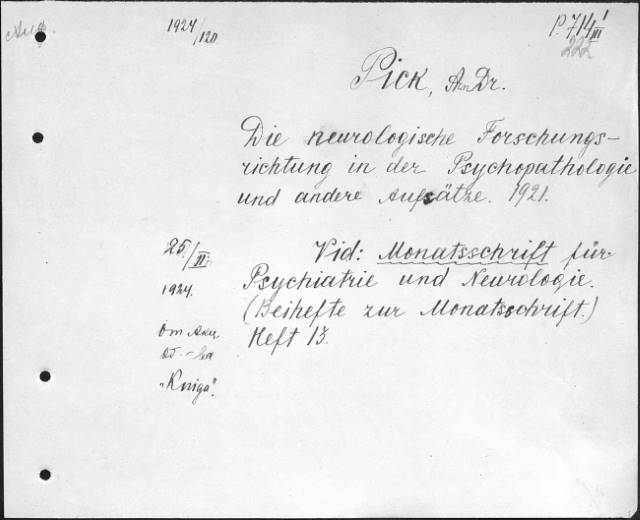 1924/120
P. 714 I/III
222
Pick, A. Dr.
Die neurologische Forschungs-
richtung in der Psychopathologie
und andere Aufsätze. 1921.
25/III
1924.
Vid: Monatsschrift für
Psychiatrie und Neurologie.
(Beihefte zur Monatsschrift.)
Heft 13.
"Kniga".